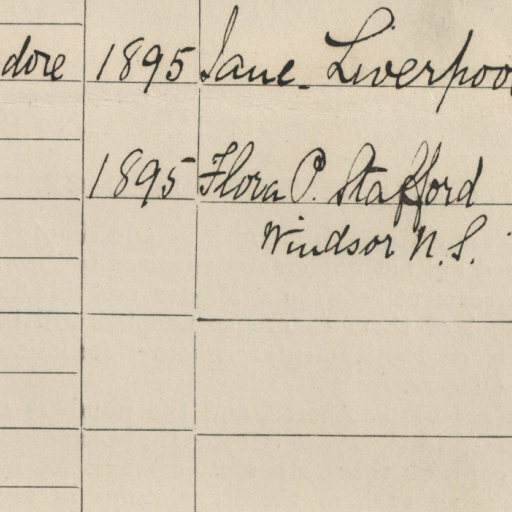 dore 1895 Jane. Liverpool
1895 Flora P. Stafford
Windsor N.S.